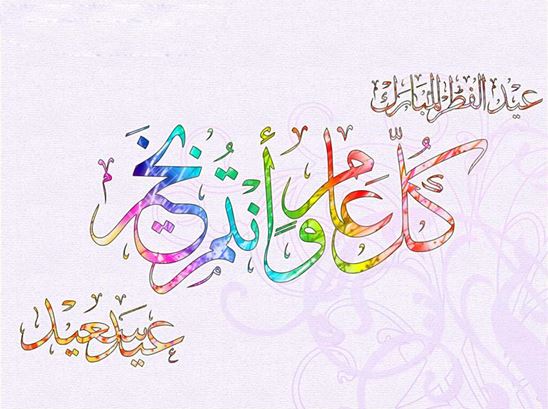 عيد الفطر المبارك
كُلُّ عَامٍ وَأَنْتُمْ بِخَيْر
عيد سعيد